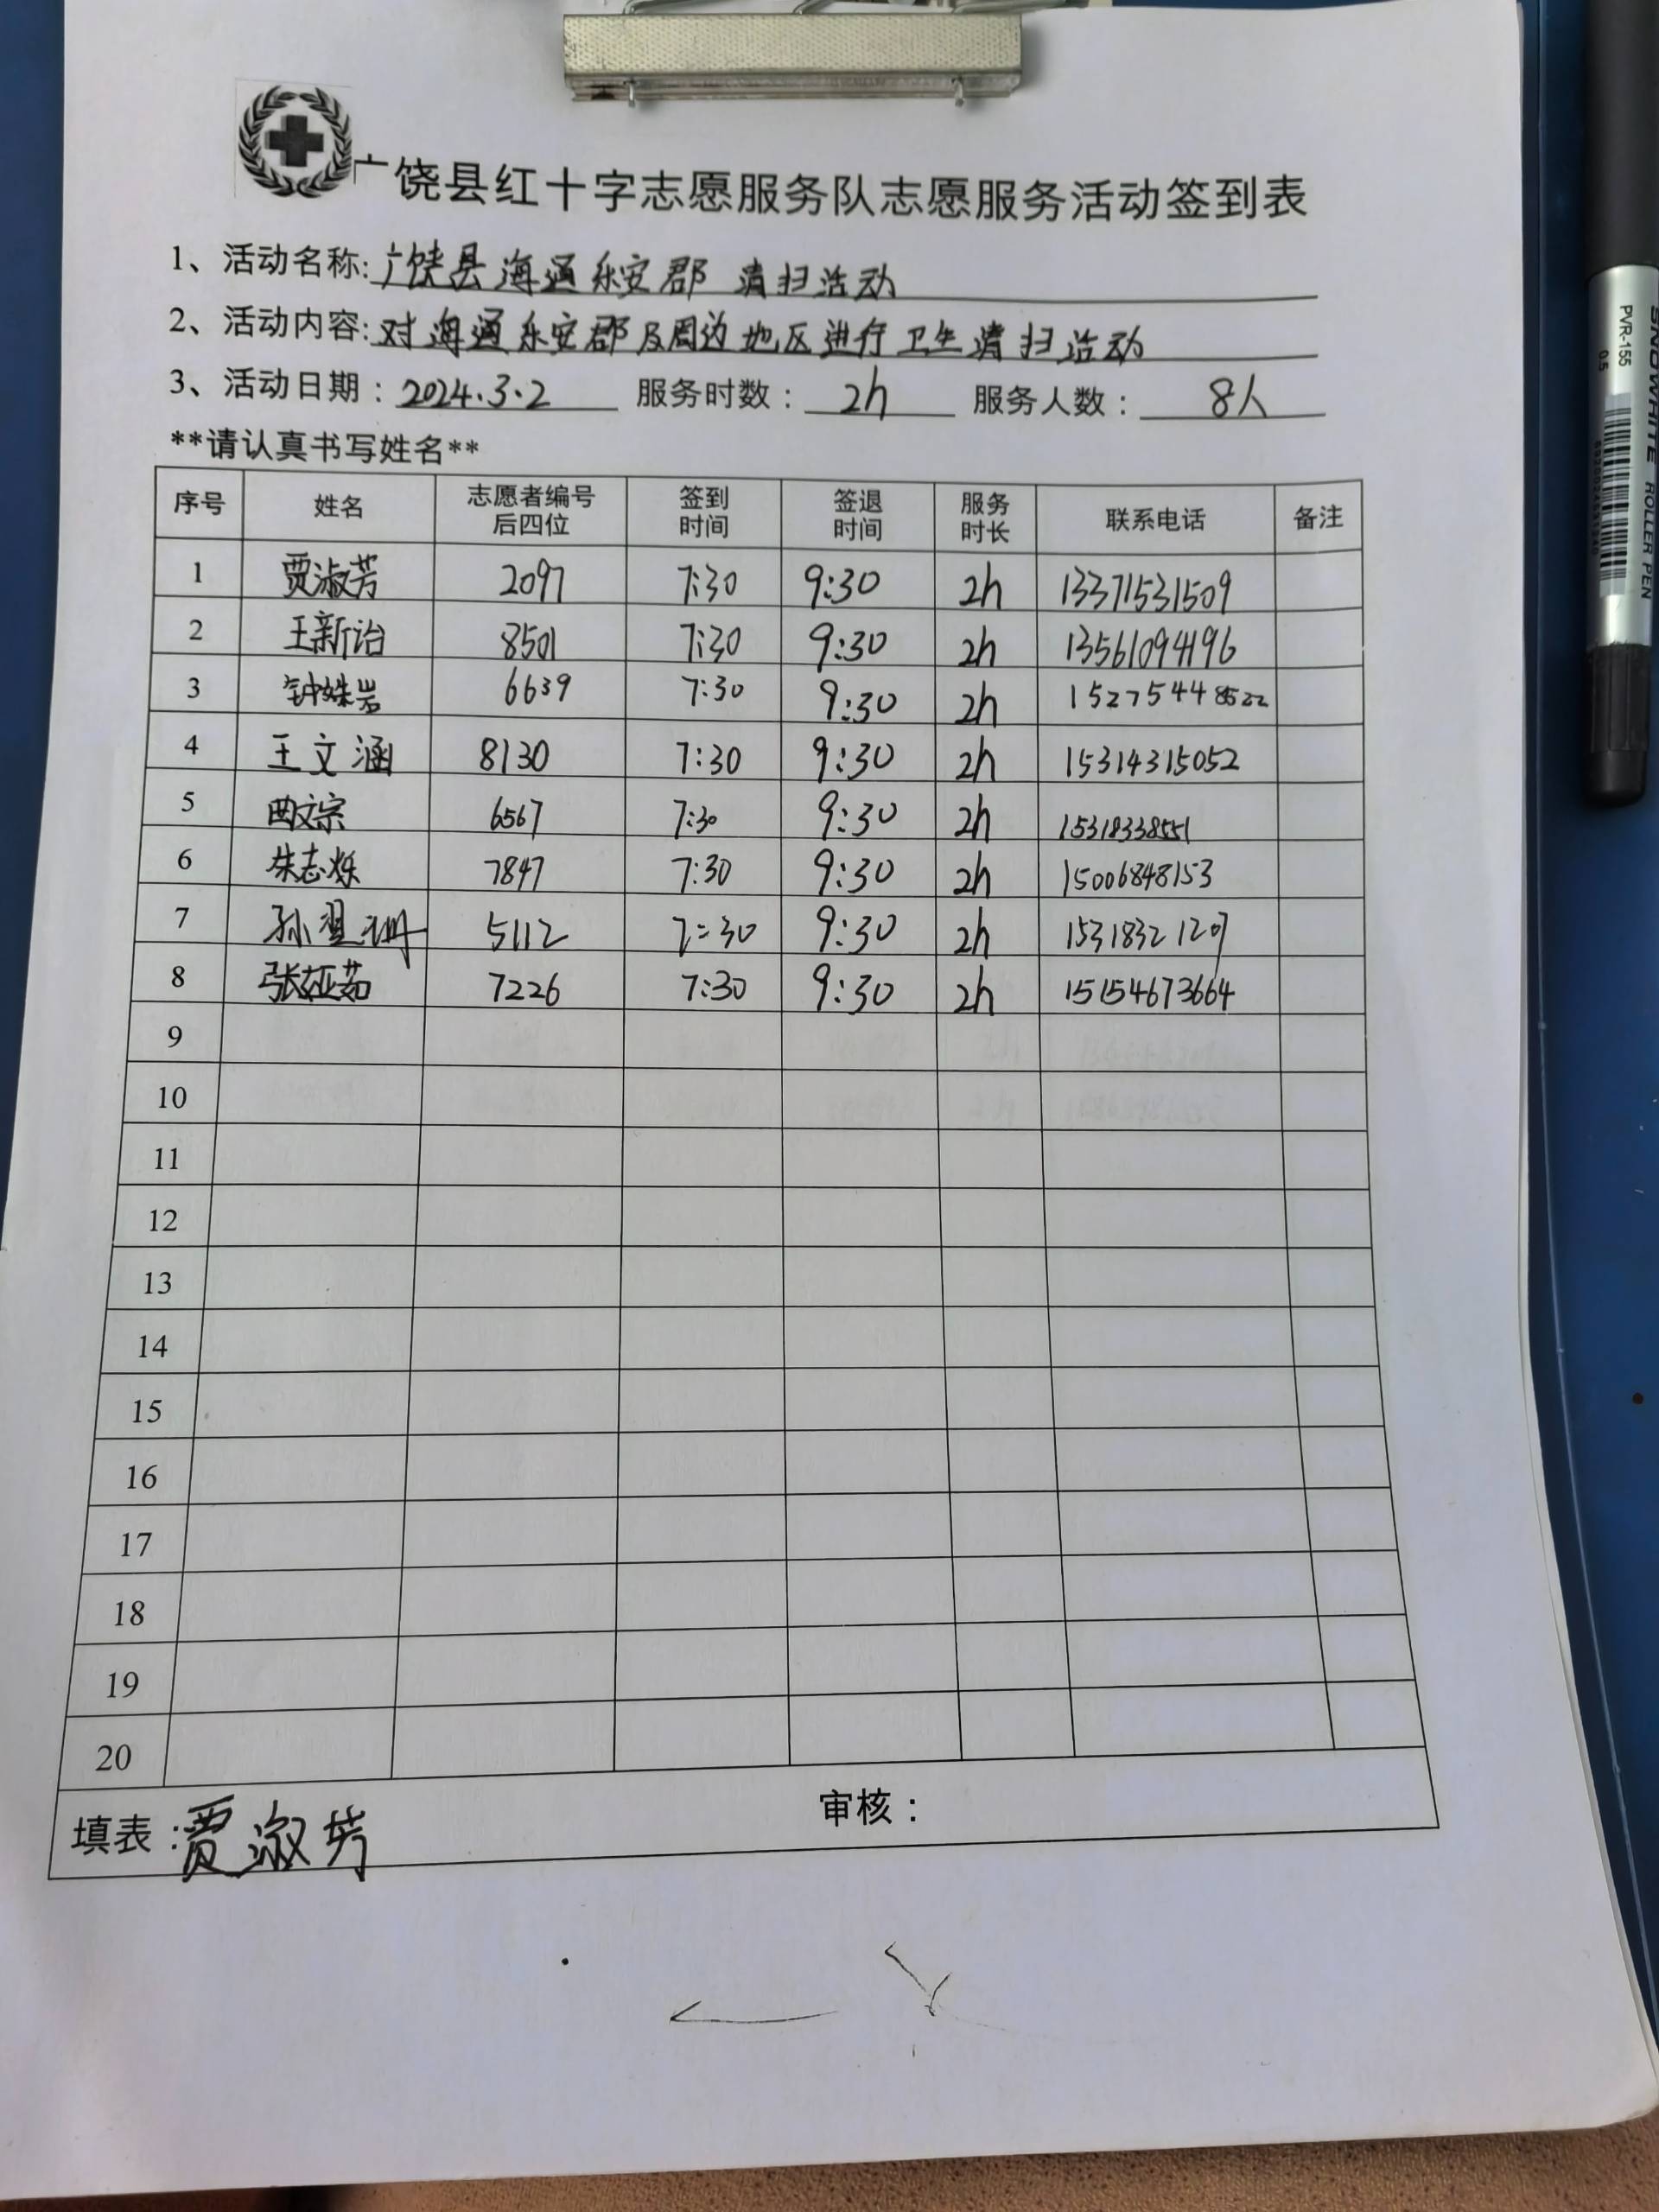 广饶县红十字志愿服务队志愿服务活动签到表
1、活动名称:广饶县海通乐安郡 清扫活动
2、活动内容:对海通乐安郡及周边地区进行卫生清扫活动
3、活动日期：2024.3.2 服务时数：2h 服务人数：8人
**请认真书写姓名**
序号 姓名 志愿者编号后四位 签到时间 签退时间 服务时长 联系电话 备注
1 贾淑芳 2097 7:30 9:30 2h 13371531509
2 王新诒 8501 7:30 9:30 2h 13561094196
3 钟姝岩 6639 7:30 9:30 2h 15275448522
4 王文涵 8130 7:30 9:30 2h 15314315052
5 曲文宗 6567 7:30 9:30 2h 15318338551
6 朱志烁 7847 7:30 9:30 2h 15006848153
7 孙 5112 7:30 9:30 2h 15318321207
8 张娅茹 7226 7:30 9:30 2h 15154673664
9
10
11
12
13
14
15
16
17
18
19
20
填表：贾淑芳 审核：
SNOWWHITE ROLLER PEN
PVR-155 0.5